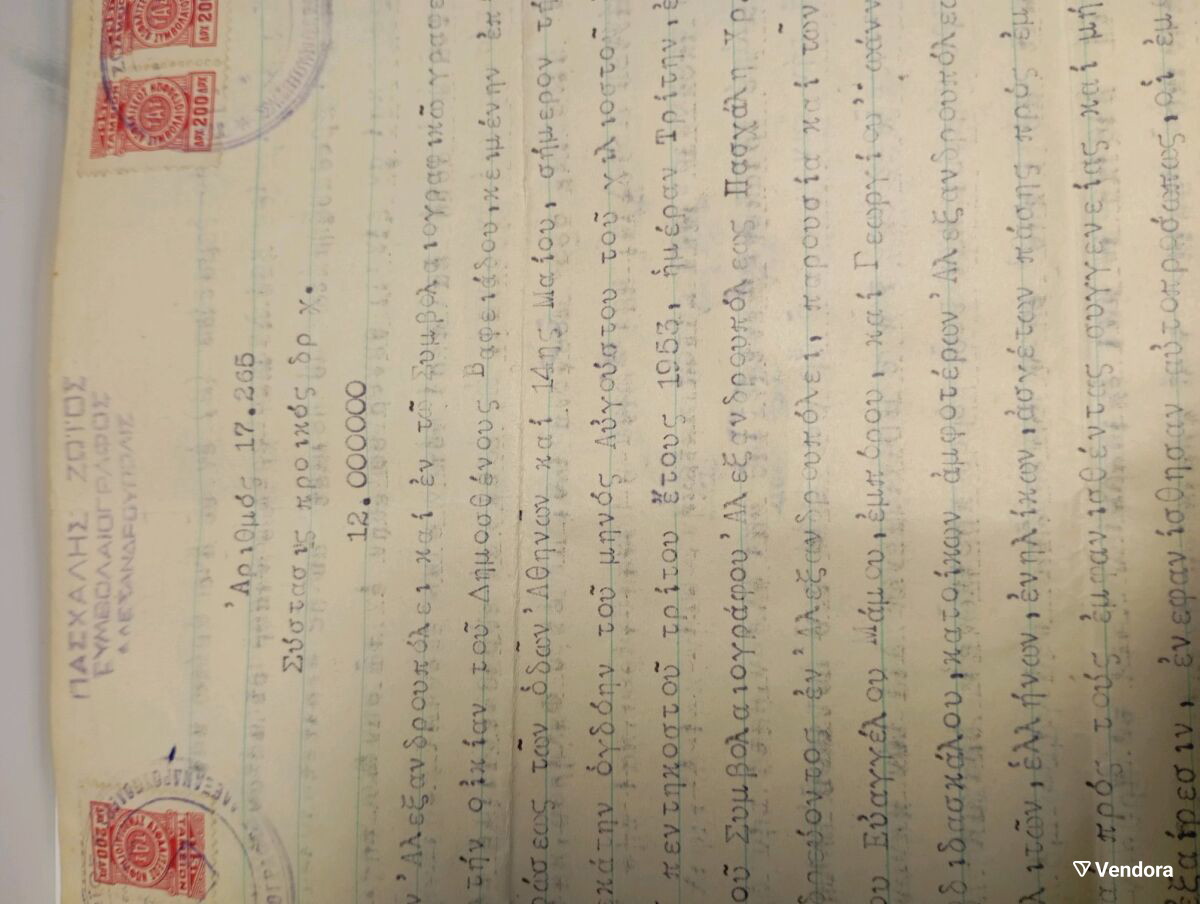 ΠΑΣΧΑΛΗΣ ΖΩΤΟΣ
ΣΥΜΒΟΛΑΙΟΓΡΑΦΟΣ
ΑΛΕΞΑΝΔΡΟΥΠΟΛΙΣ
Ἀριθμός 17.265
Σύστασις προικός δρ χ.
12.000000
ν Ἀλεξανδρουπόλει καί ἐν τῶ Συμβολαιογραφικῶ γραφε
τήν οἰκίαν τοῦ Δημοσθένους Βαφειάδου,κειμένην ἐπ
άσεως τῶν ὁδῶν Ἀθηνῶν καί 14ης Μαίου, σήμερον τή
εκάτην ὀγδόην τοῦ μηνός Αὐγούστου τοῦ χιλιοστοῦ
πεντηκοστοῦ τρίτου ἔτους 1953, ἡμέραν Τρίτην,ἐ
οῦ Συμβολαιογράφου Ἀλεξανδρουπόλεως Πασχάλη Χρ.
δρεύοντος ἐν Ἀλεξανδρουπόλει, παρουσία καί τῶν
ου Εὐαγγέλου Μάμου,ἐμπόρου,καί Γεωργίου
διδασκάλου,κατοίκων ἀμφοτέρων Ἀλεξανδρουπόλεω
λιτῶν,ἑλλήνων,ἐνηλίκων,ἀσχέτων πάσης πρός ἐμ
α πρός τούς ἐμφανισθέντας συγγενείας καί μή
ξαίρεσιν, ἐνεφανίσθησαν αὐτοπρσώπως,οἱ ἐμ
ΔΡΧ 200 ΔΡΧ
ΔΡΧ 200
Vendora